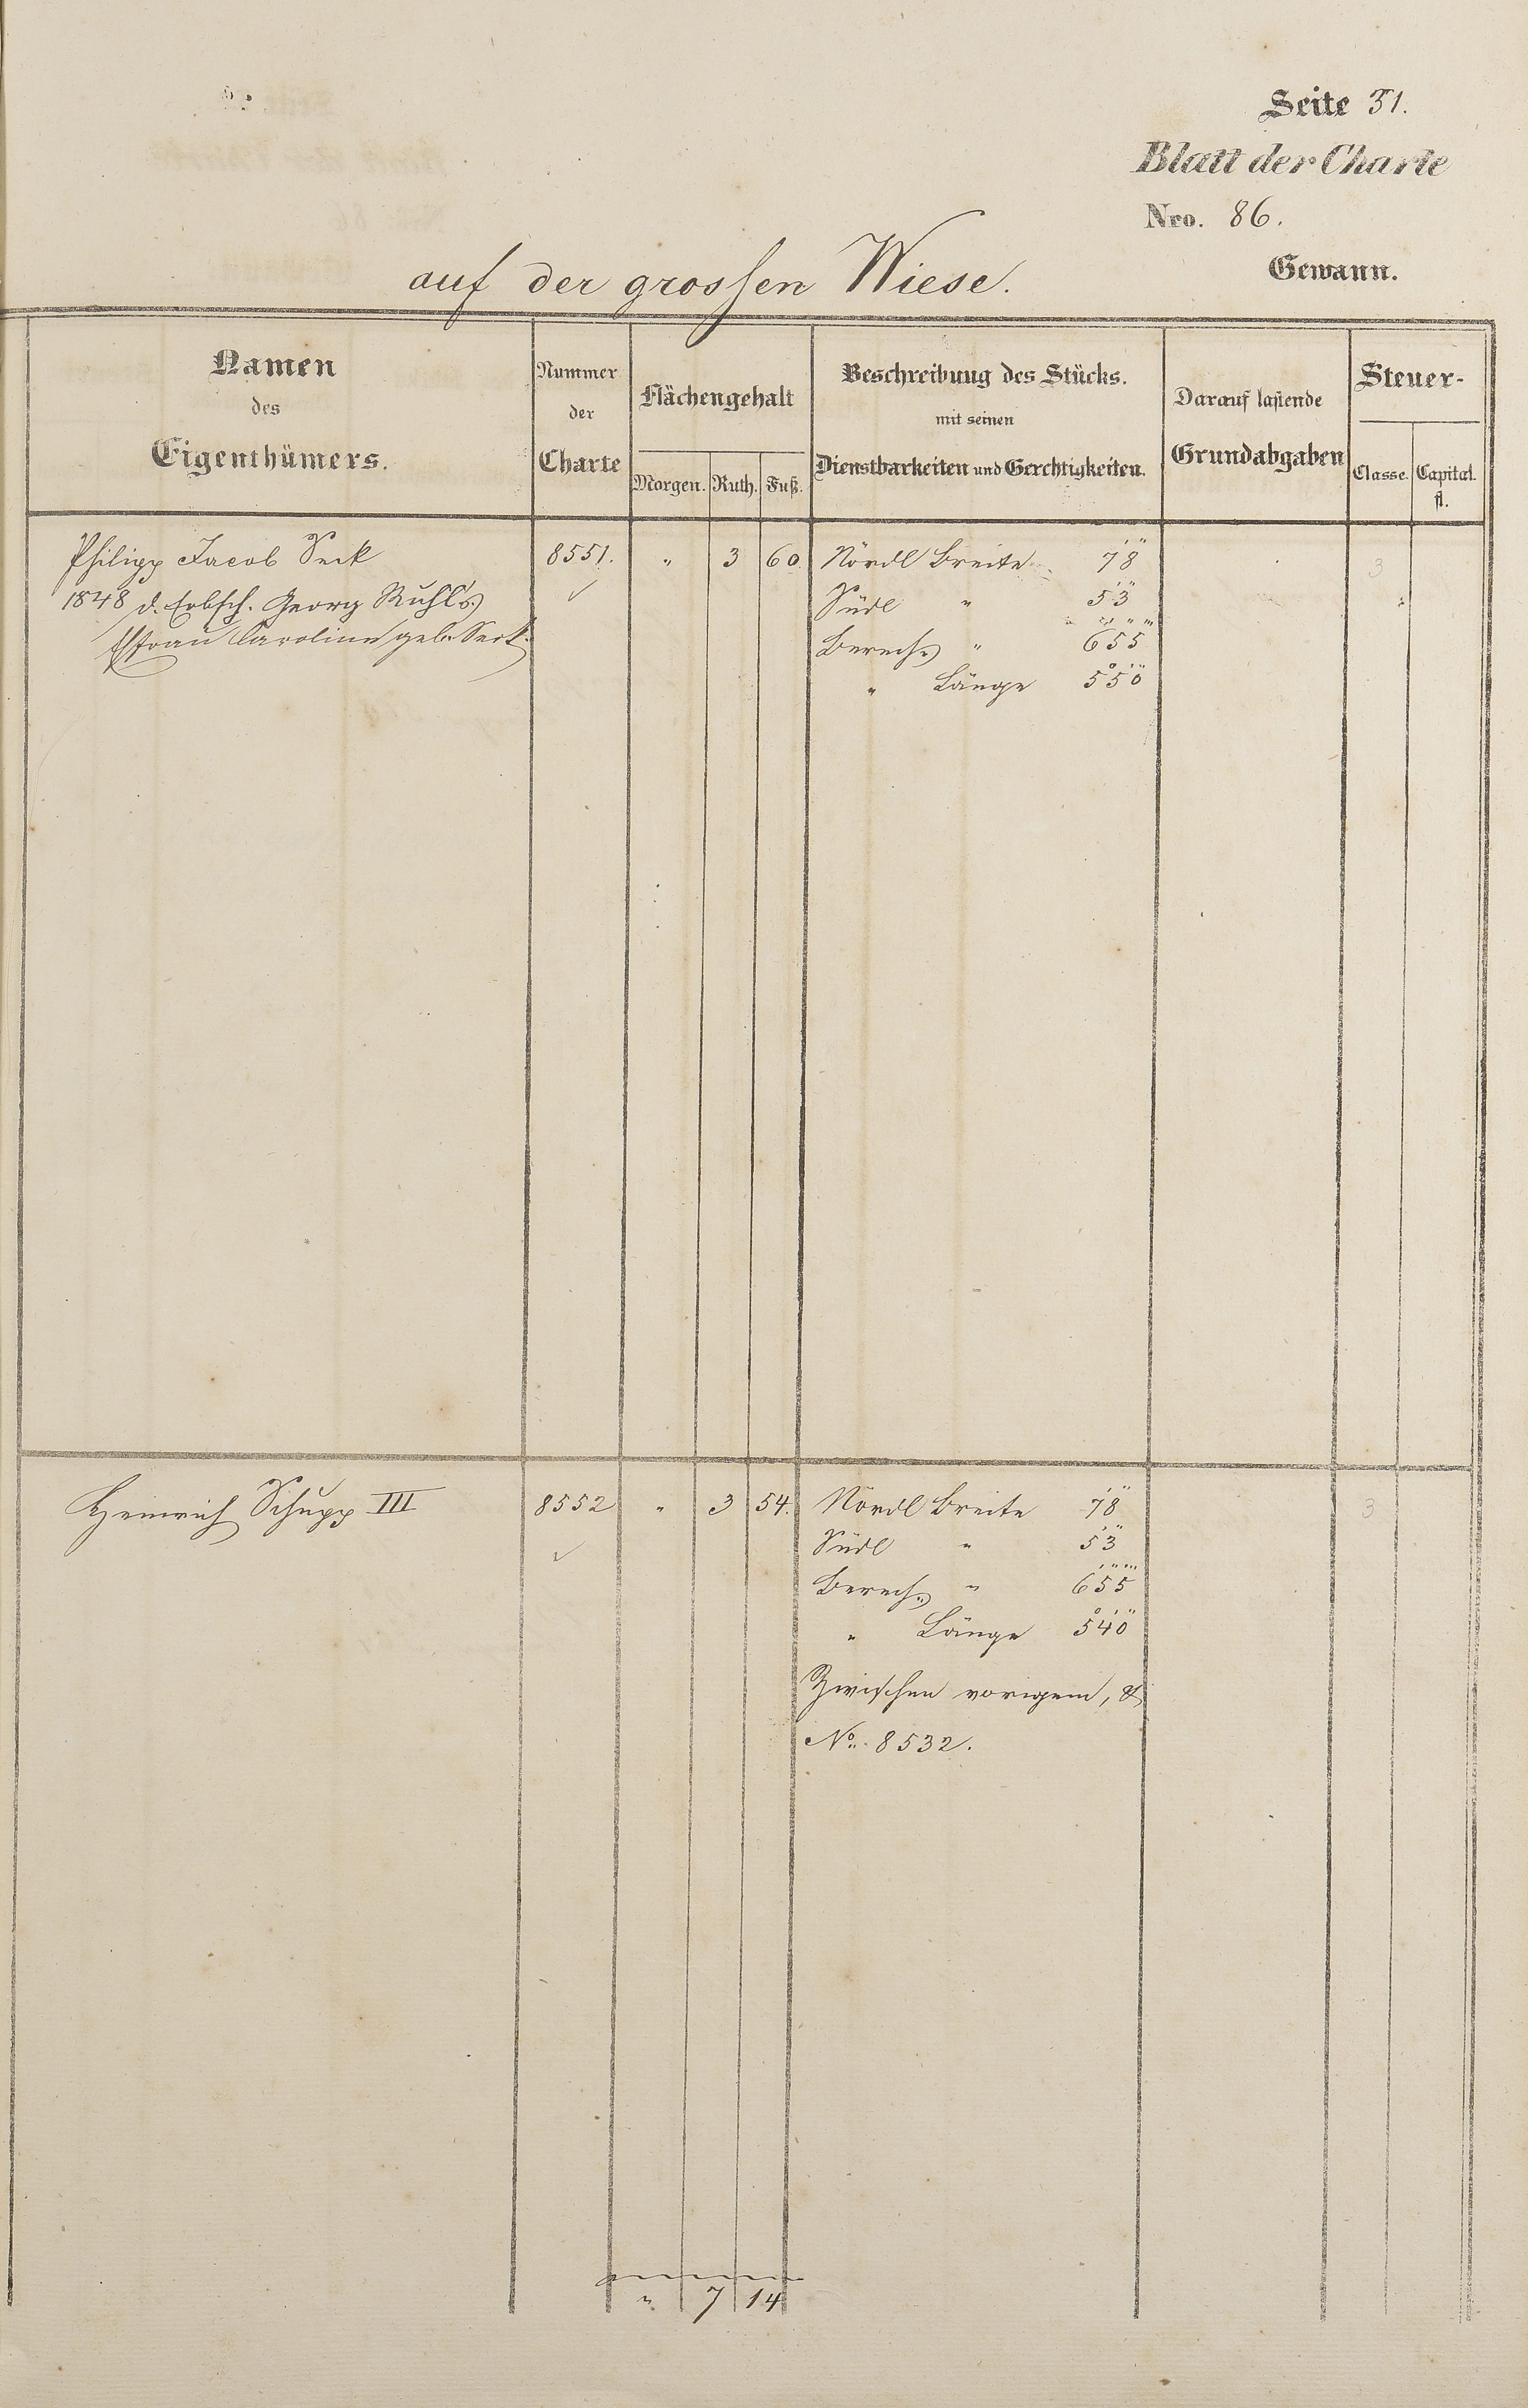 Seite 31.
Blatt der Charte
Nro. 86.
auf der grossen Wiese. Gewann.
Namen des Eigenthümers.
Nummer der Charte
Flächengehalt
Morgen. Ruth. Fuß.
Beschreibung des Stücks.
mit seinen
Dienstbarkeiten und Gerechtigkeiten.
Darauf lastende
Grundabgaben
Steuer-
Classe. Capital.
fl.
Philipp Jacob Seck 8551. " 3 60 Nördl Breite 7' 8" 3
1848 d. Erbsch. Georg Ruhl's Südl " 5' 3"
Efrau Caroline geb. Seck. Berech. " 6' 5" 5'''
" Länge 5° 5' 0"
Heinrich Schupp III 8552 " 3 54. Nördl Breite 7' 8" 3
Südl " 5' 3"
Berech. " 6' 5" 5'''
" Länge 5° 4' 0"
Zwischen vorigem, &
No. 8532.
" 7 14